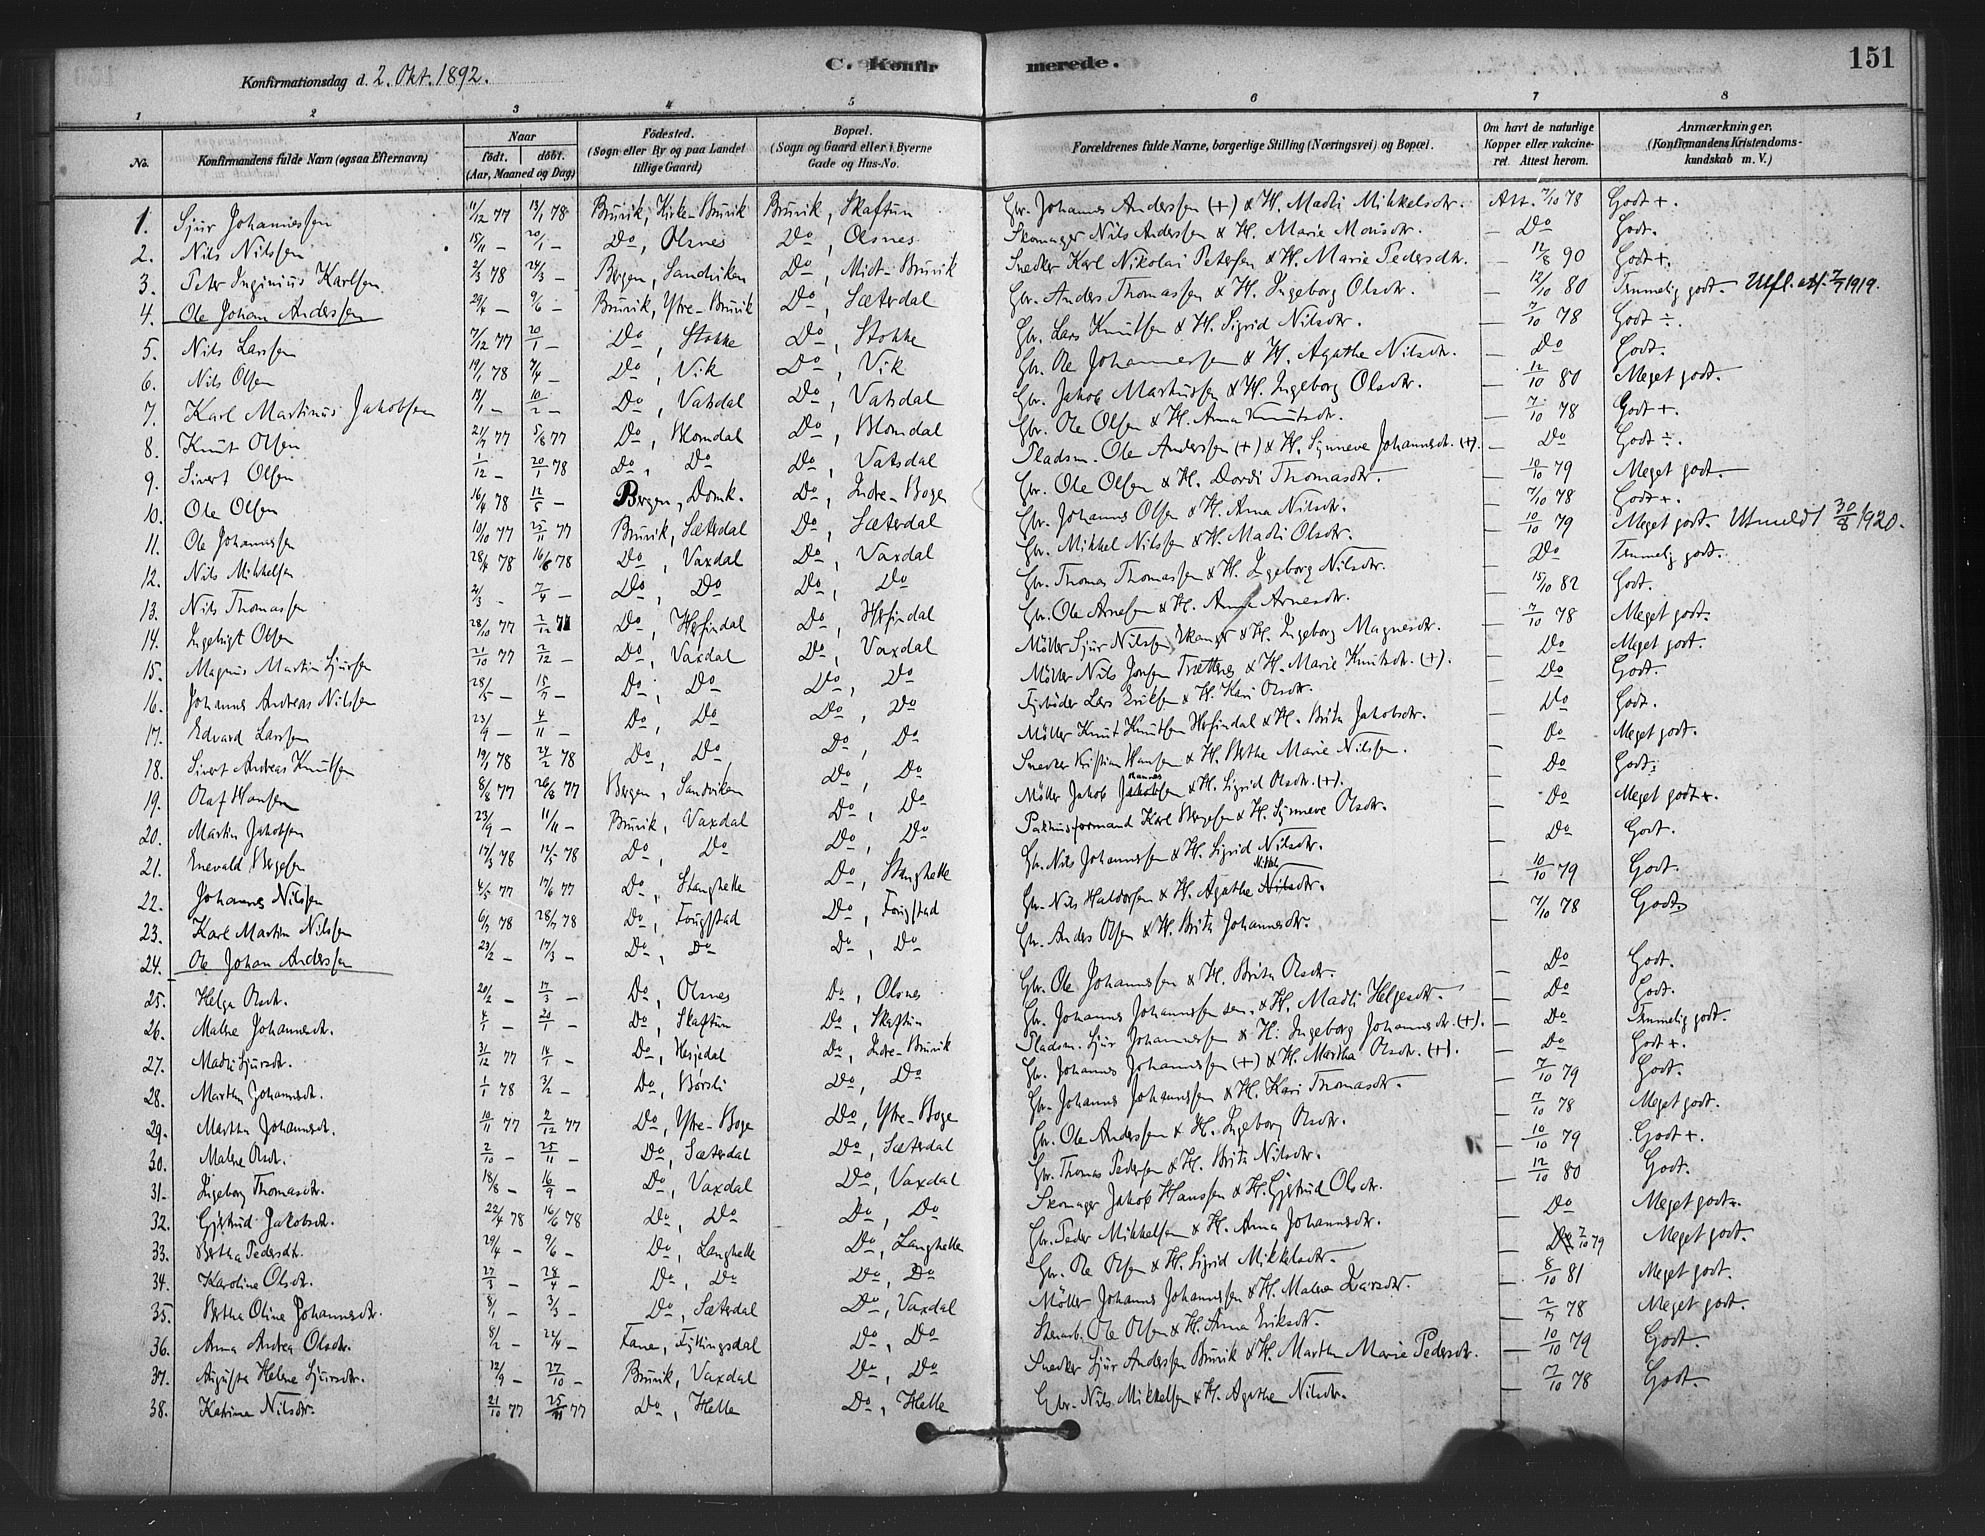 Konfirmationsdag d. 2. Okt. 1892. C. Konfirmerede. 151
1 2 3 4 5 6 7 8
No. Konfirmandens fulde Navn (ogsaa Efternavn) Naar födt. döbt. (Aar, Maaned og Dag) Födested. (Sogn eller By og paa Landet tillige Gaard) Bopæl. (Sogn og Gaard eller i Byerne Gade og Hus-No. Forældrenes fulde Navne, borgerlige Stilling (Næringsvei) og Bopæl. Om havt de naturlige Kopper eller vakcineret. Attest herom. Anmærkninger. (Konfirmandens Kristendomskundskab m. V.)
1. Sjur Johannessen 11/12 77 13/1 78 Bruvik, Kirke-Bruvik Bruvik, Skaftun Gbr. Johannes Anderssen (+) & H. Madli Mikkelsdtr. Att. 7/10 78 Godt +.
2. Nils Nilssen 15/11 – 20/1 – Do, Olsnes Do, Olsnes Skomager Nils Anderssen & H. Marie Monsdtr. – Do Godt.
3. Peter Inginius Karlsen 2/3 78 24/3 – Bergen, Sandviken Do, Midt-Bruvik Snedker Karl Nikolai Petersen & H. Marie Pedersdtr. – 12/8 90 Godt +.
4. Ole Johan Anderssen 29/4 – 9/6 – Bruvik, Ytre-Bruvik Do, Sæterdal Gbr. Anders Thomassen & H. Ingeborg Olsdtr. – 12/10 80 Temmelig godt. Utfl. att. 2/7 1919.
5. Nils Larssen 7/12 77 20/1 – Do, Stokke Do, Stokke Gbr. Lars Knutsen & H. Sigrid Nilsdtr. – 7/10 78 Godt ÷.
6. Nils Olsen 19/1 78 7/4 – Do, Vik Do, Vik Gbr. Ole Johannessen & H. Agathe Nilsdtr. – Do Godt.
7. Karl Martinus Jakobsen 13/1 – 10/2 – Do, Vatsdal Do, Vatsdal Gbr. Jakob Markussen & H. Ingeborg Olsdtr. – 12/10 80 Meget godt.
8. Knut Olsen 21/7 77 5/8 77 Do, Blomdal Do, Blomdal Gbr. Ole Olsen & H. Anna Knutsdtr. – 7/10 78 Godt +.
9. Sivert Olsen 1/12 – 20/1 78 Do, Do Do, Vatsdal Pladsm. Ole Anderssen (+) & H. Synneve Johannesdtr. (+). – Do Godt ÷.
10. Ole Olsen 16/4 78 12/5 – Bergen, Domk. Do, Indre-Boge Gbr. Ole Olsen & H. Dordi Thomasdtr. – 10/10 79 Meget godt
11. Ole Johannessen 10/10 77 25/11 77 Bruvik, Sæterdal Do, Sæterdal Gbr. Johannes Olsen & H. Anna Nilsdtr. – 7/10 78 Godt +.
12. Nils Mikkelsen 28/4 78 16/6 78 Do, Vaxdal Do, Vaxdal Gbr. Mikkel Nilssen & H. Madli Olsdtr. – 10/10 79 Meget godt. Utmeldt 30/8 1920.
13. Nils Thomassen 2/3 – 7/4 – Do, Do Do, Do Gbr. Thomas Thomassen & H. Ingeborg Nilsdtr. Do Temmelig godt.
14. Ingebrigt Olsen 28/10 77 2/12 77 Do, Herfindal Do, Herfindal Gbr. Ole Arnesen & H. Anna Arnesdtr. – 15/10 82 Godt.
15. Magnus Martin Sjursen 21/10 77 2/12 – Do, Vaxdal Do, Vaxdal Möller Sjur Nilssen & H. Ingeborg Magnesdtr. – 7/10 78 Meget godt.
16. Johannes Andreas Nilssen 28/5 – 15/7 – Do, Do Do, Do Möller Nils Jonsen Trættenes & H. Marie Knutsdtr. (+). – Do Meget godt.
17. Edvard Larssen 23/9 – 4/11 – Do, Do Do, Do Fyrböder Lars Eriksen & H. Kari Olsdtr. – Do Godt.
18. Sivert Andreas Knutsen 19/1 78 24/2 78 Do, Do Do, Do Möller Knut Knutsen Herfindal & H. Brita Jakobsdtr. – Do Godt.
19. Olaf Hansen 8/8 77 26/8 77 Bergen, Sandviken Do, Do Snedker Kristian Hansen & H. Berthe Marie Nilssen. – Do Meget godt.
20. Martin Jakobsen 23/9 – 11/11 – Bruvik, Vaxdal Do, Do Möller Jakob & H. Sigrid Olsdtr. (+). – Do Godt.
21. Enevald Bergesen 17/3 78 12/5 78 Do, Do Do, Do Pakhusformand Karl Bergesen & H. Synneve Olsdtr. – Do Meget godt +.
22. Johannes Nilssen 4/5 77 17/6 77 Do, Stanghelle Do, Stanghelle Gbr. Nils Johannessen & H. Sigrid Nilsdtr. – Do Godt.
23. Karl Martin Nilssen 6/7 78 28/7 78 Do, Fougstad Do, Fougstad Gbr. Nils Haldorsen & H. Agathe Nilsdtr. – 10/10 79 Godt.
24. Ole Johan Anderssen 23/2 – 17/3 – Do, Do Do, Do Gbr. Anders Olsen & H. Brita Johannesdtr. – 7/10 78 Godt
25. Helga Olsdtr. 20/2 – 17/3 – Do, Olsnes Do, Olsnes Gbr. Ole Johannessen & H. Brita Olsdtr. – Do Godt.
26. Malene Johannesdtr. 4/1 – 20/1 – Do, Skaftun Do, Skaftun Gbr. Johannes Johannessen sen. & H. Madli Helgesdtr. – Do Godt.
27. Madli Sjursdtr. 31/12 77 14/1 – Do, Hesjedal Do, Indre-Bruvik Pladsm. Sjur Johannessen & H. Ingeborg Johannesdtr. (+). – Do Temmelig godt.
28. Martha Johannesdtr. 1/1 78 3/2 – Do, Børsli Do, Do Gbr. Johannes Johannessen (+) & H. Martha Olsdtr. (+). – Do Godt +.
29. Martha Johannesdtr. 10/11 77 2/12 77 Do, Ytre-Boge Do, Ytre-Boge Gbr. Johannes Johannessen & H. Kari Thomasdtr. – 7/10 79 Godt.
30. Malene Olsdtr. 2/10 – 25/11 – Do, Sæterdal Do, Sæterdal Gbr. Ole Anderssen & H. Ingeborg Olsdtr. – 7/10 78 Meget godt.
31. Ingeborg Thomasdtr. 18/8 – 16/9 – Do, Vaxdal Do, Vaxdal Gbr. Thomas Pedersen & H. Brita Nilsdtr. – 10/10 79 Godt +.
32. Gjertrud Jakobsdtr. 22/4 78 16/6 78 Do, Do Do, Do Skomager Jakob Hanssen & H. Gjertrud Olsdtr. – 12/10 80 Godt.
33. Bertha Pedersdtr. 29/4 – 9/6 – Do, Langhelle Do, Langhelle Gbr. Peder Mikkelsen & H. Anna Johannesdtr. – Do Meget godt.
34. Karoline Olsdtr. 27/3 – 28/4 – Do, Do Do, Do Gbr. Ole Olsen & H. Sigrid Mikkelsdtr. – 7/10 79 Meget godt.
35. Bertha Oline Johannesdtr. 8/1 – 3/3 – Do, Sæterdal Do, Vaxdal Möller Johannes Johannessen & H. Malene Larsdtr. – 8/10 81 Meget godt.
36. Anna Andrea Olsdtr. 8/2 – 22/4 – Fane, Fyllingsdal Do, Do Stenarb. Ole Olsen & H. Anna Eriksdtr. – 2/7 78 Meget godt.
37. Augusta Helene Sjursdtr. 12/9 – 27/10 – Bruvik, Vaxdal Do, Do Snedker Sjur Anderssen Bruvik & H. Martha Marie Pedersdtr. – 10/10 79 Godt
38. Katrina Nilsdtr. 21/10 77 25/11 77 Do, Helle Do, Helle Gbr. Nils Mikkelsen & H. Agathe Nilsdtr. – 7/10 78 Godt